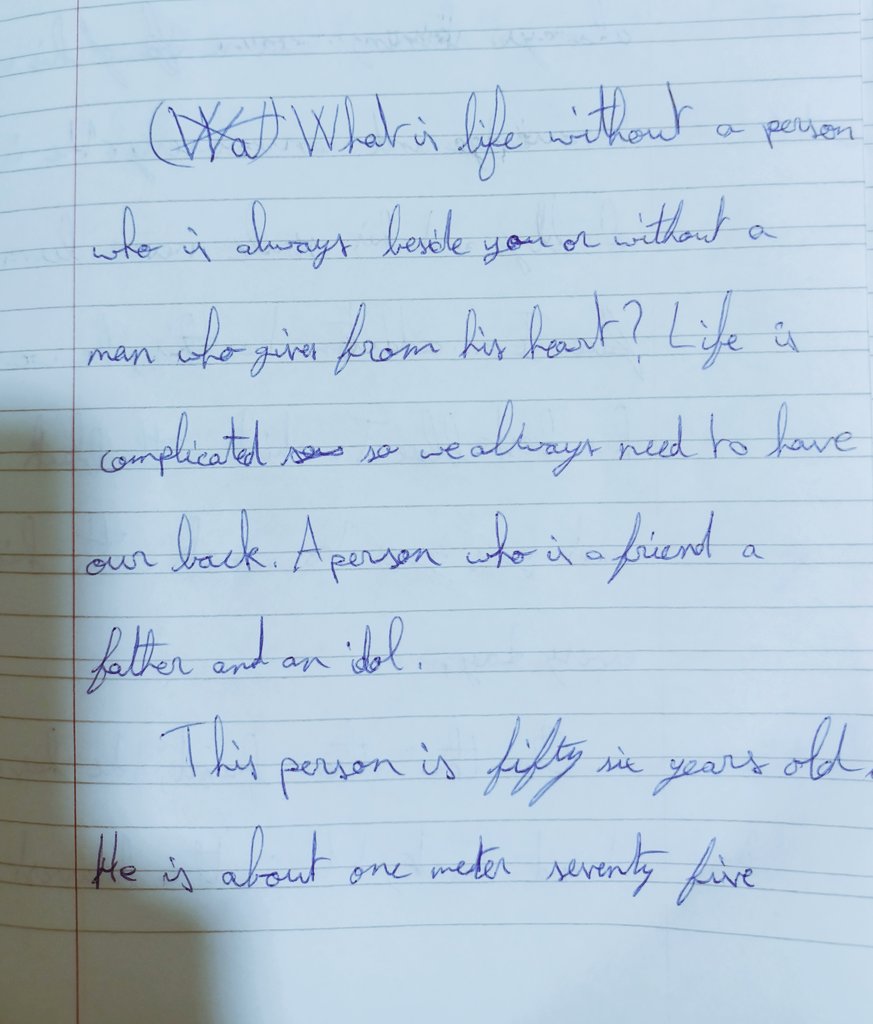 (Wa) What is life without a person
who is always beside you or without a
man who gives from his heart? Life is
complicated so we always need to have
our back. A person who is a friend a
father and an idol.
This person is fifty six years old.
He is about one meter seventy five